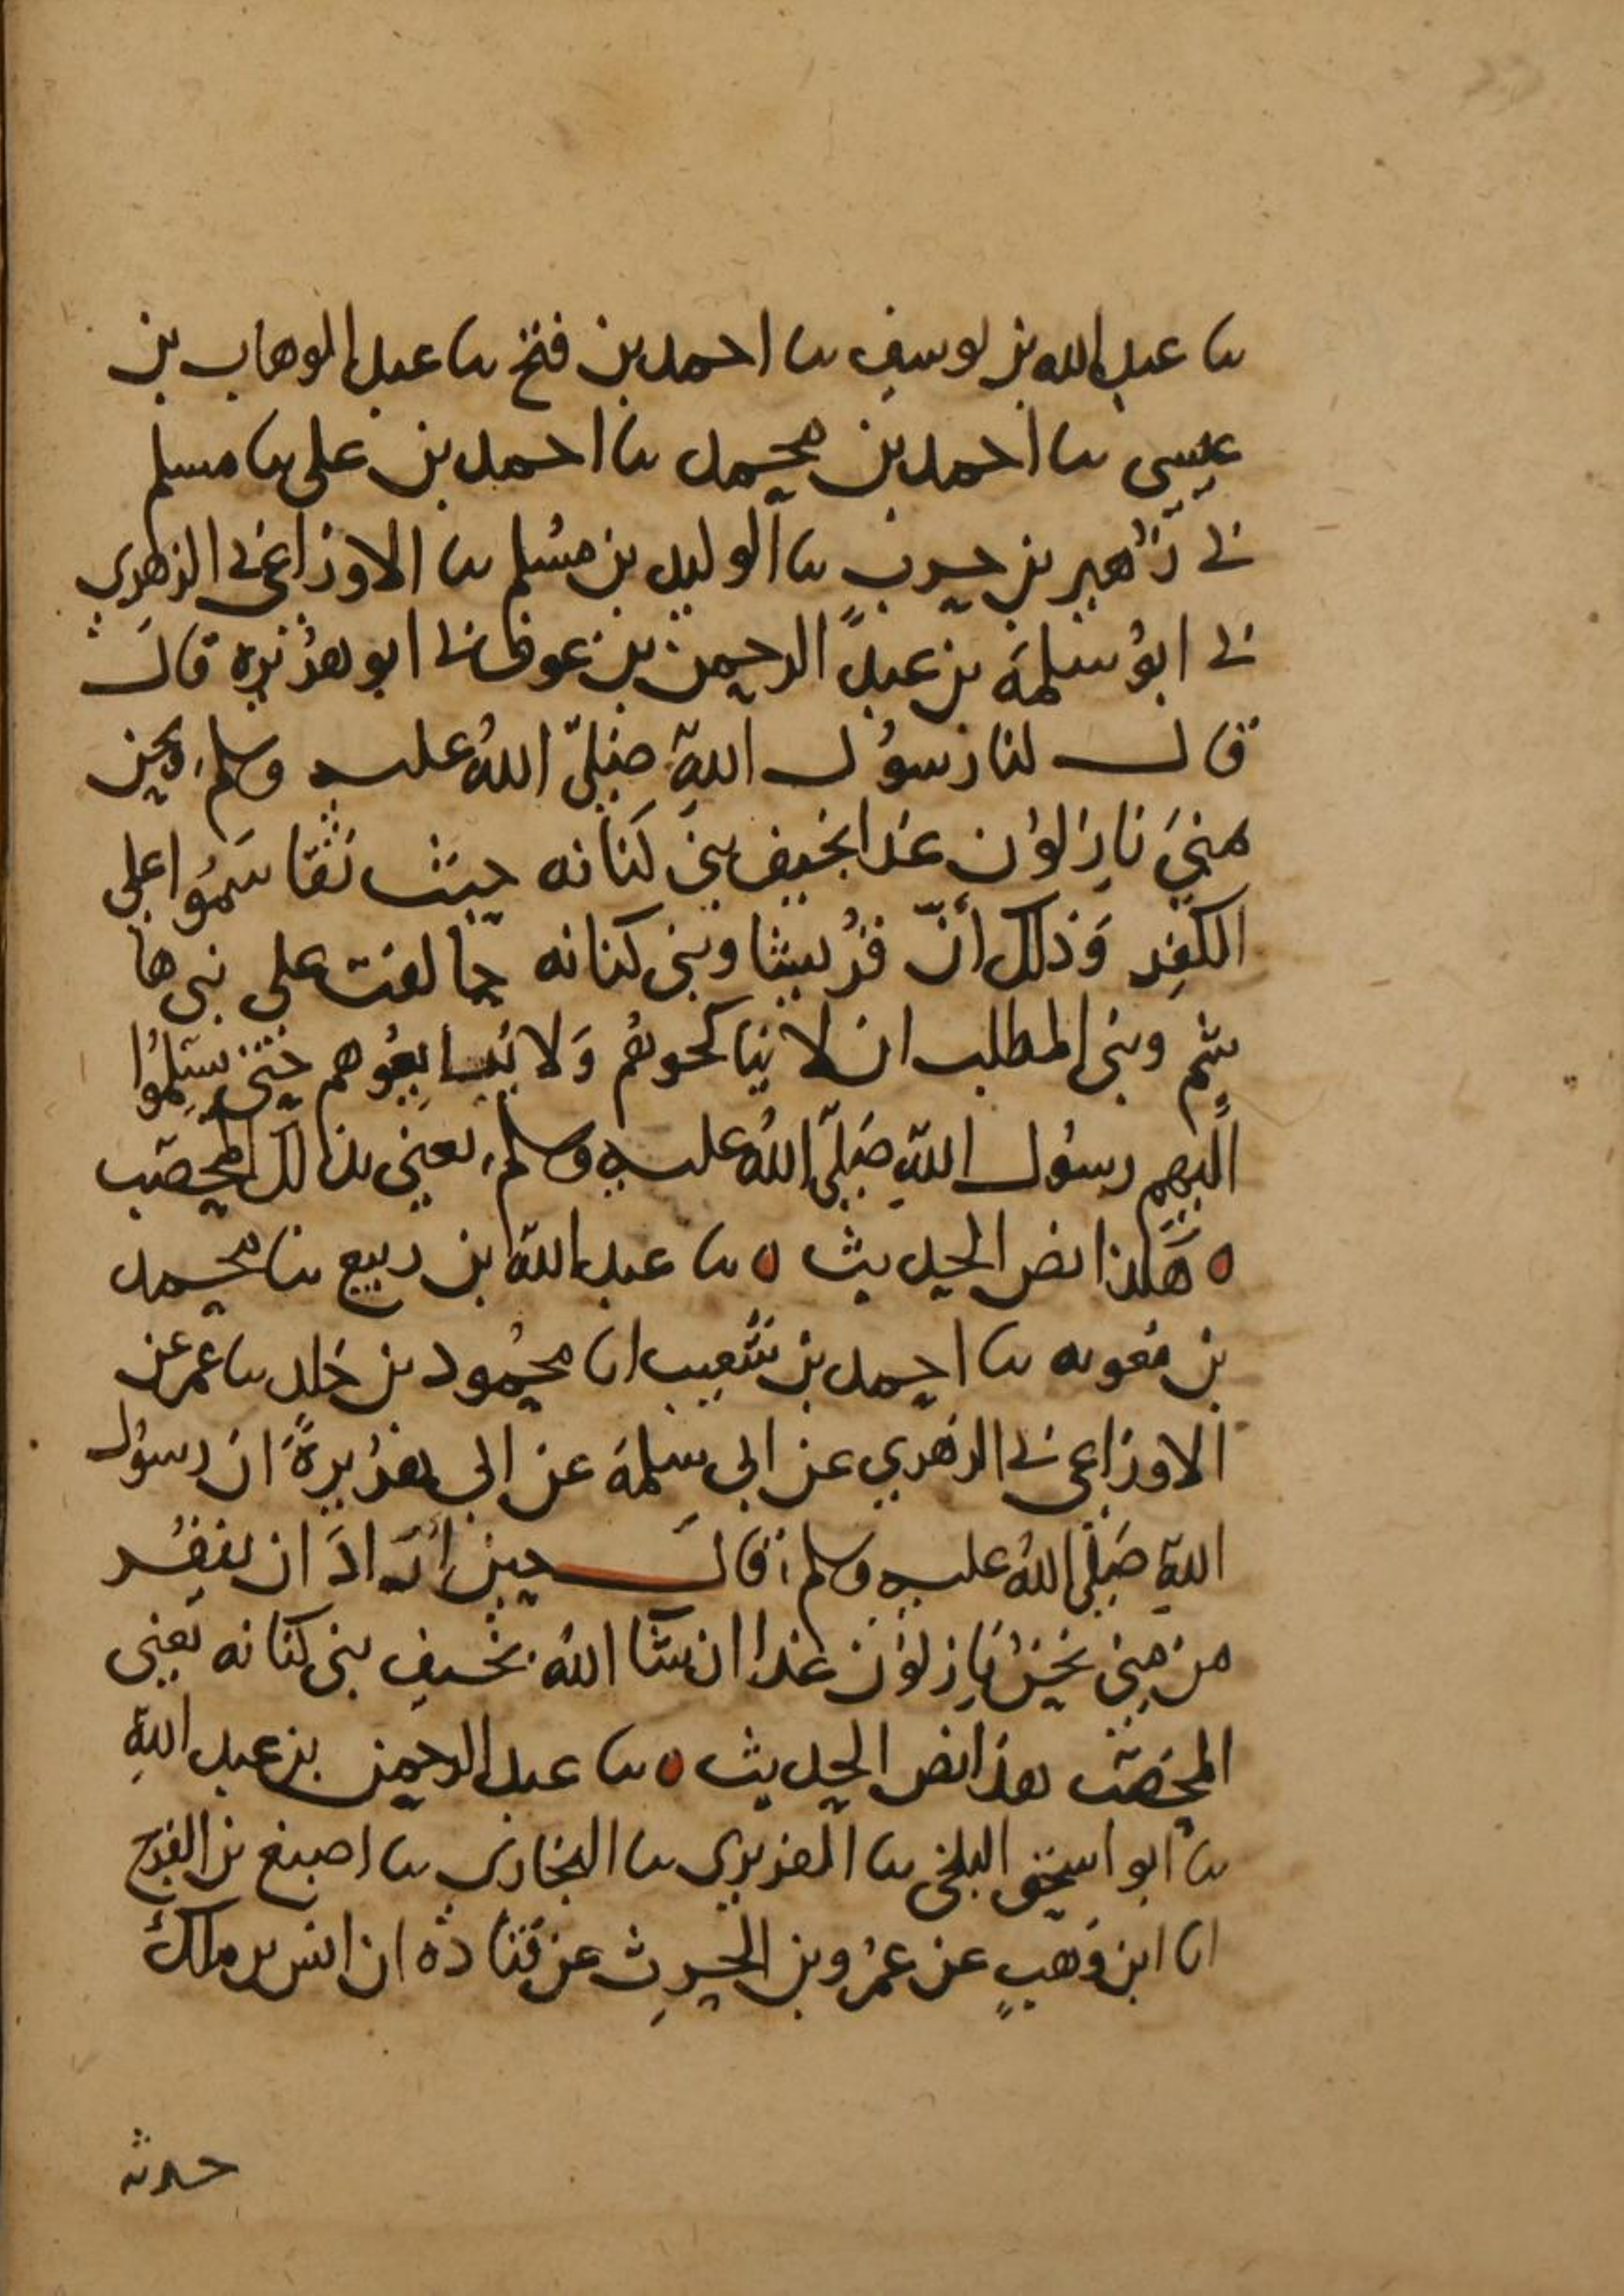 نا عبد الله بن يوسف نا احمد بن فتح نا عبد الوهاب بن
عيسى نا احمد بن محمد نا احمد بن علي نا مسلم
ني زهير بن حرب نا الوليد بن مسلم نا الاوزاعي ني الزهري
ني ابو سلمة بن عبد الرحمن بن عوف ني ابو هريره قال
قال لنا رسول الله صلى الله عليه وسلم ونحن
بمنى نازلون غدا بخيف بني كنانه حيث تقاسموا على
الكفر وذلك أنّ قريشا وبني كنانه حالفت على بني ها
شم وبني المطلب ان لا يناكحوهم ولا يبايعوهم حتى يسلموا
اليهم رسول الله صلى الله عليه وسلم يعني بذالك المحصب
ه هكذا نص الحديث ه نا عبد الله بن ربيع نا محمد
بن معويه نا احمد بن شعيب انا محمود بن خلد نا عمر عن
الاوزاعي ني الزهري عن ابي سلمة عن ابي هريرة ان رسول
الله صلى الله عليه وسلم قال حين اراد ان ينفر
من منى نحن نازلون غدا ان شا الله بخيف بني كنانه يعني
المحصب هذا نص الحديث ه نا عبد الرحمن بن عبد الله
نا ابو اسحق البلخي نا الفربري نا البخاري نا اصبغ بن الفرج
انا ابن وهب عن عمرو بن الحرث عن قتادة ان انس بن ملك
حدثه